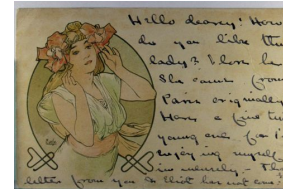 Hello deary! How
do you like the
lady? I love her
She came from
Paris originally
Have a fine tu
young and for I'
enjoying myself
immensely - Th
letter from you I